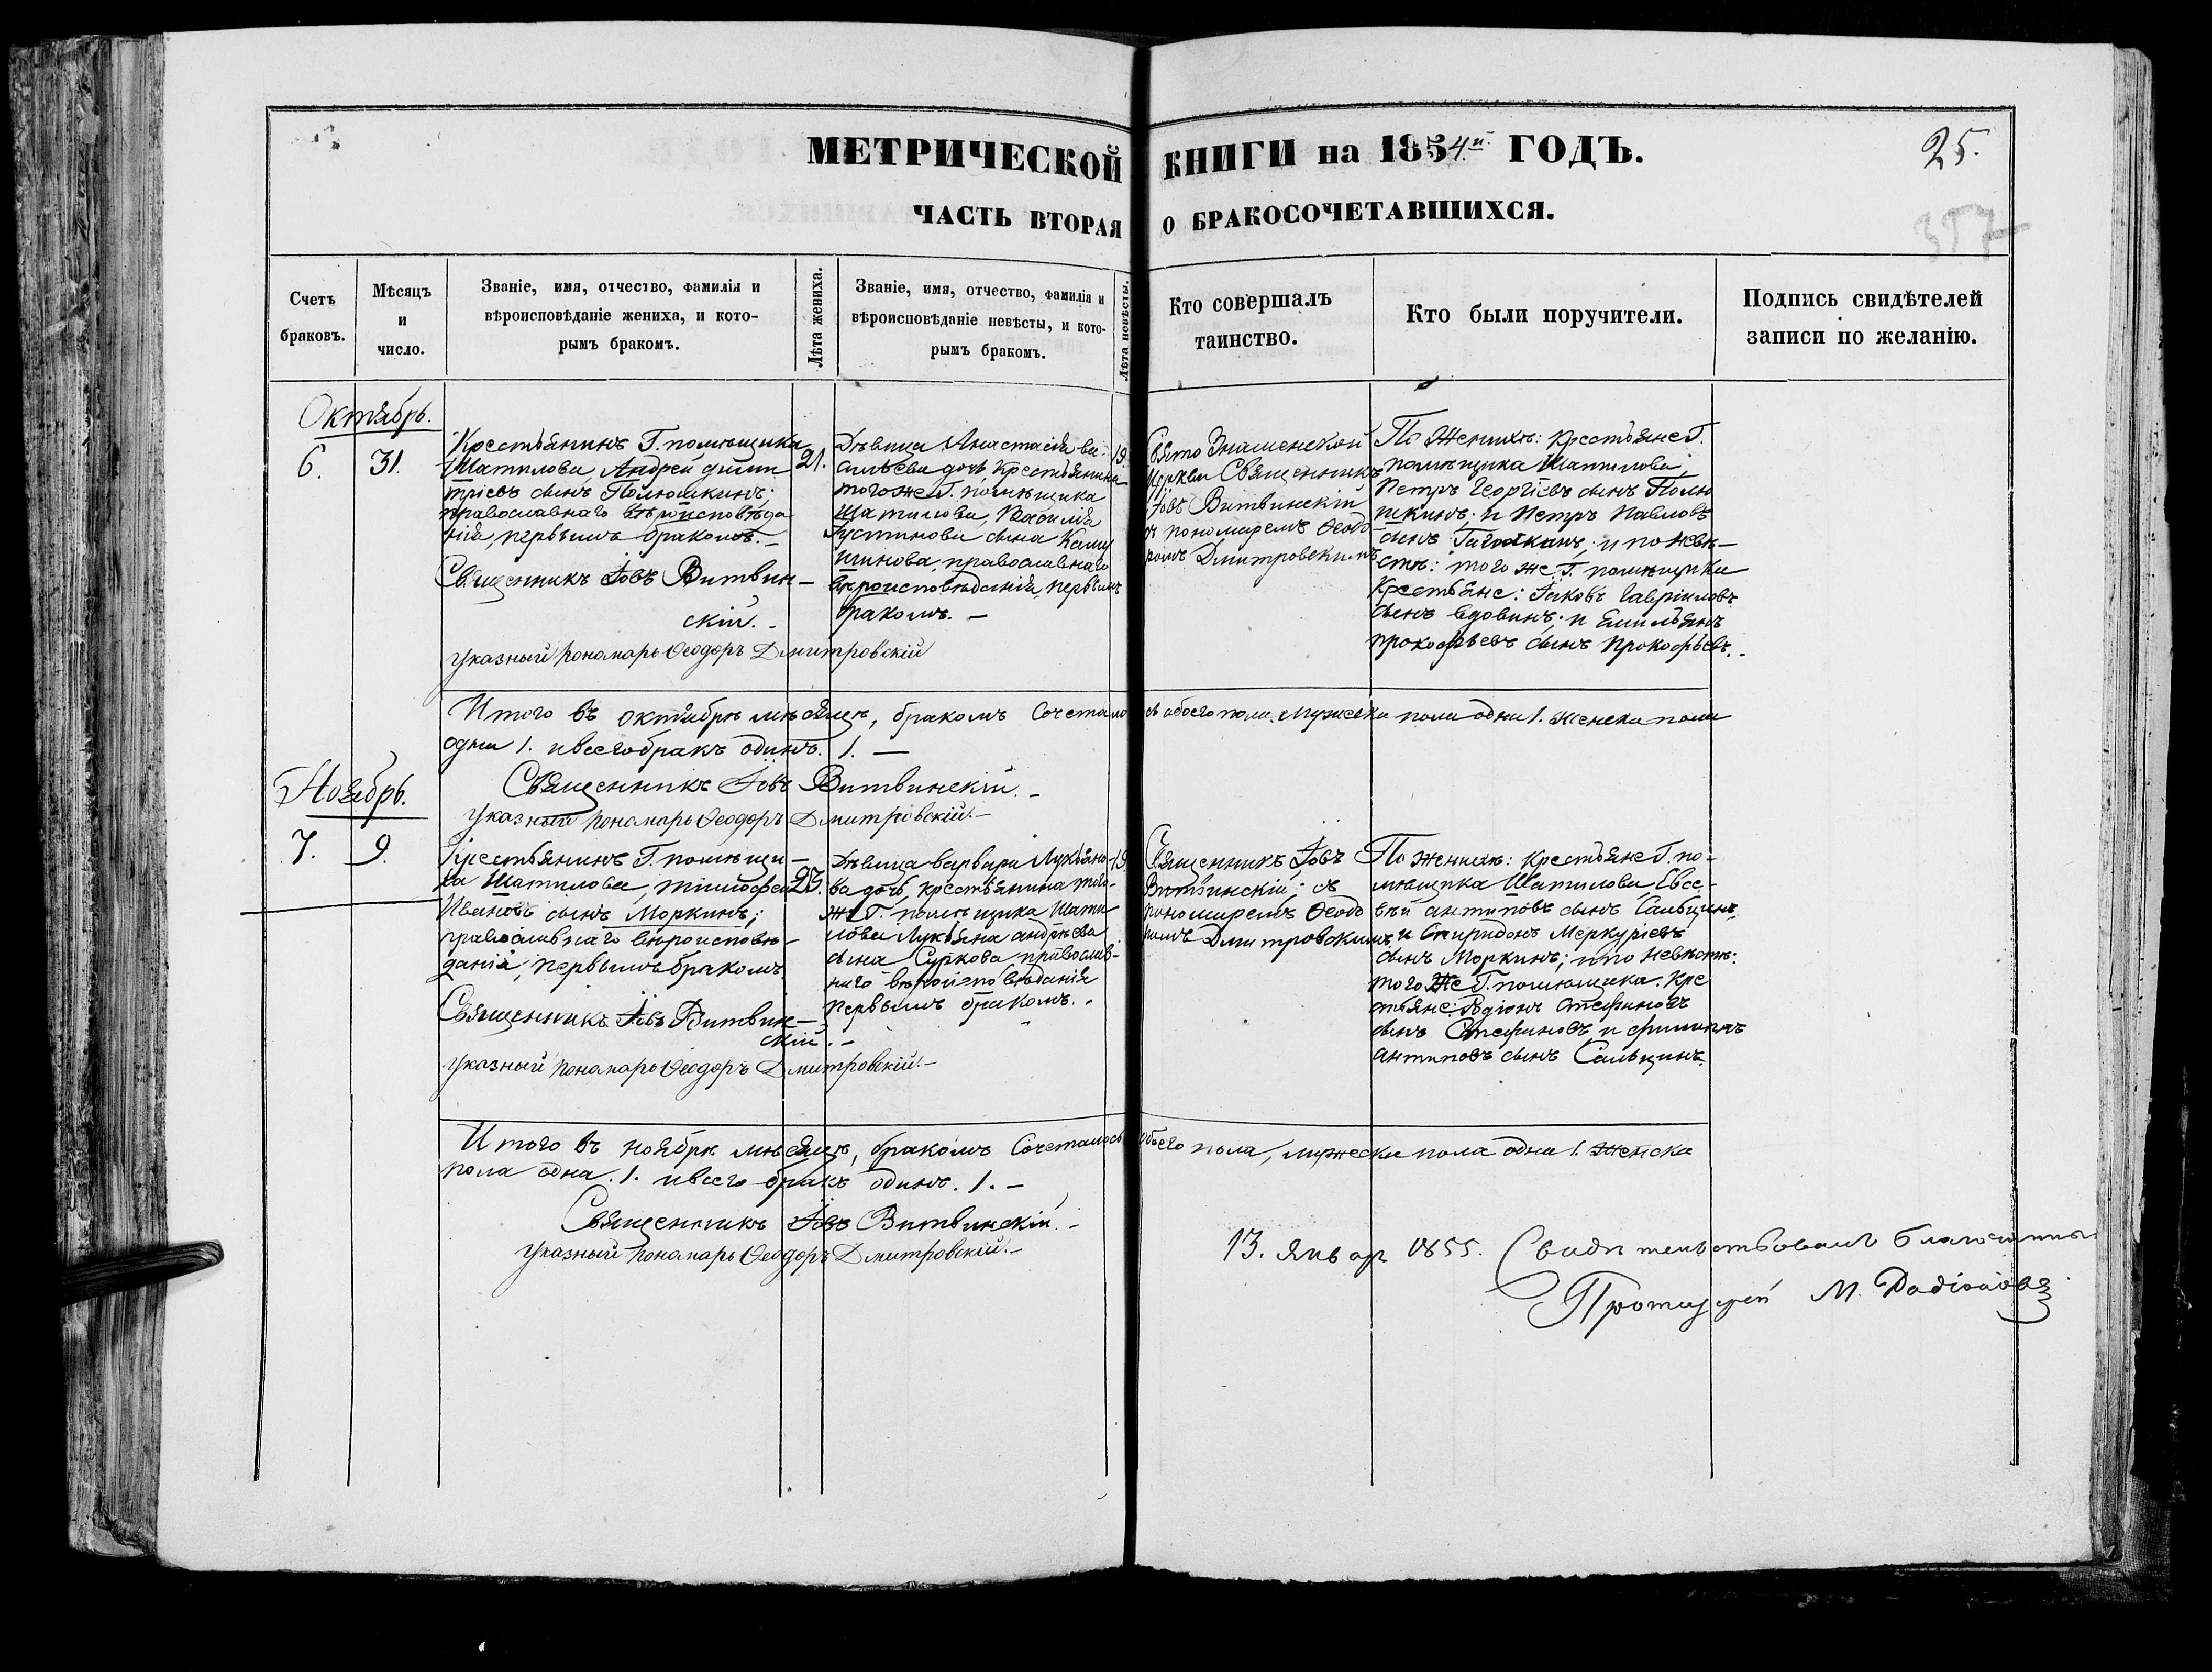 МЕТРИЧЕСКОЙ КНИГИ на 1854й ГОДЪ.
25.
357
ЧАСТЬ ВТОРАЯ О БРАКОСОЧЕТАВШИХСЯ.
Счетъ браковъ.
Мѣсяцъ и число.
Званіе, имя, отчество, фамилія и
вѣроисповѣданіе жениха, и кото-
рымъ бракомъ.
Лѣта жениха.
Званіе, имя, отчество, фамилія и
вѣроисповѣданіе невѣсты, и кото-
рымъ бракомъ.
Лѣта невѣсты.
Кто совершалъ
таинство.
Кто были поручители.
Подпись свидѣтелей
записи по желанію.
Октябрь.
6.
31.
Крестьянинъ Г. помѣщика
Шатилова, Андрей дими
тріевъ сынъ Полюшкинъ;
православнаго вѣроисповѣда
нія, первымъ бракомъ. —
Священникъ Іовъ Витвин—
скій. -
указный пономарь Ѳеодоръ Дмитровскій
21.
Дѣвица Анастасія ва-
сильева дочь, крестьянина
того же Г. помѣщика
Шатилова, Василія
Густинова сына
православнаго
вѣроисповѣданія, первымъ
бракомъ. —
19.
Свято Знаменской
Церкви Священникъ
Іовъ Витвинскій
съ пономаремъ Ѳеодо
ромъ Дмитровскимъ
По Женихѣ: крестьяне Г.
помѣщика Шатилова,
Петръ Георгіевъ сынъ Полю
шкинъ; и Петръ Павловъ
сынъ и по невѣ—
стѣ: того же Г. помѣщика
Крестьяне: Іаковъ Гавріиловъ
сынъ вдовинъ; и Емильянъ
прокофьевъ сынъ Прокофьевъ. -
Итого въ октябрѣ мѣсяцѣ, бракомъ Сочетало сь обоего пола. Мужеска пола одна 1. женска пола
одна 1. и всего бракъ одинъ. 1. —
Священникъ Іовъ Витвинскій. -
указный пономарь Ѳеодоръ Дмитровскій. —
Ноябрь.
7.
9.
Крестьянинъ Г. помѣщи—
ка Шатилова, тимофей
Ивановъ сынъ Моркинъ;
православнаго вѣроисповѣ-
данія, первымъ бракомъ
Священникъ Іовъ Витвин—
скій. -
указный пономарь Ѳеодоръ Дмитровскій. —
23.
Дѣвица варвара Лукьяно-
ва дочь, крестьянина того-
же Г. помѣщика Шати
лова Лукьяна андрѣева
сына Суркова православ-
наго вѣроисповѣданія
первымъ бракомъ. -
19.
Священникъ Іовъ
Витвинскій; съ
пономаремъ Ѳеодо
ромъ Дмитровскимъ
По женихѣ: крестьяне Г. по-
мѣщика Шатилова, Евсе-
вій антиповъ сынъ Сальцинъ,
и Спиридонъ Меркуріевъ
сынъ Моркинъ; и по невѣстѣ:
того же Г. помѣщика. Кре
стьяне: Родіонъ Стефановъ
сынъ Стефановъ, и филиппъ
антиповъ сынъ Сальцинъ.
Итого въ ноябрѣ мѣсяцѣ, бракомъ Сочеталось обоего пола, мужеска пола одна 1. женска
пола одна. 1. и всего бракъ одинъ. 1. —
Священникъ Іовъ Витвинскій. -
указный пономарь Ѳеодоръ Дмитровскій. —
13. Январ 1855. Свидѣтельствовалъ благочинный
Протоіерей М. Родіоновъ